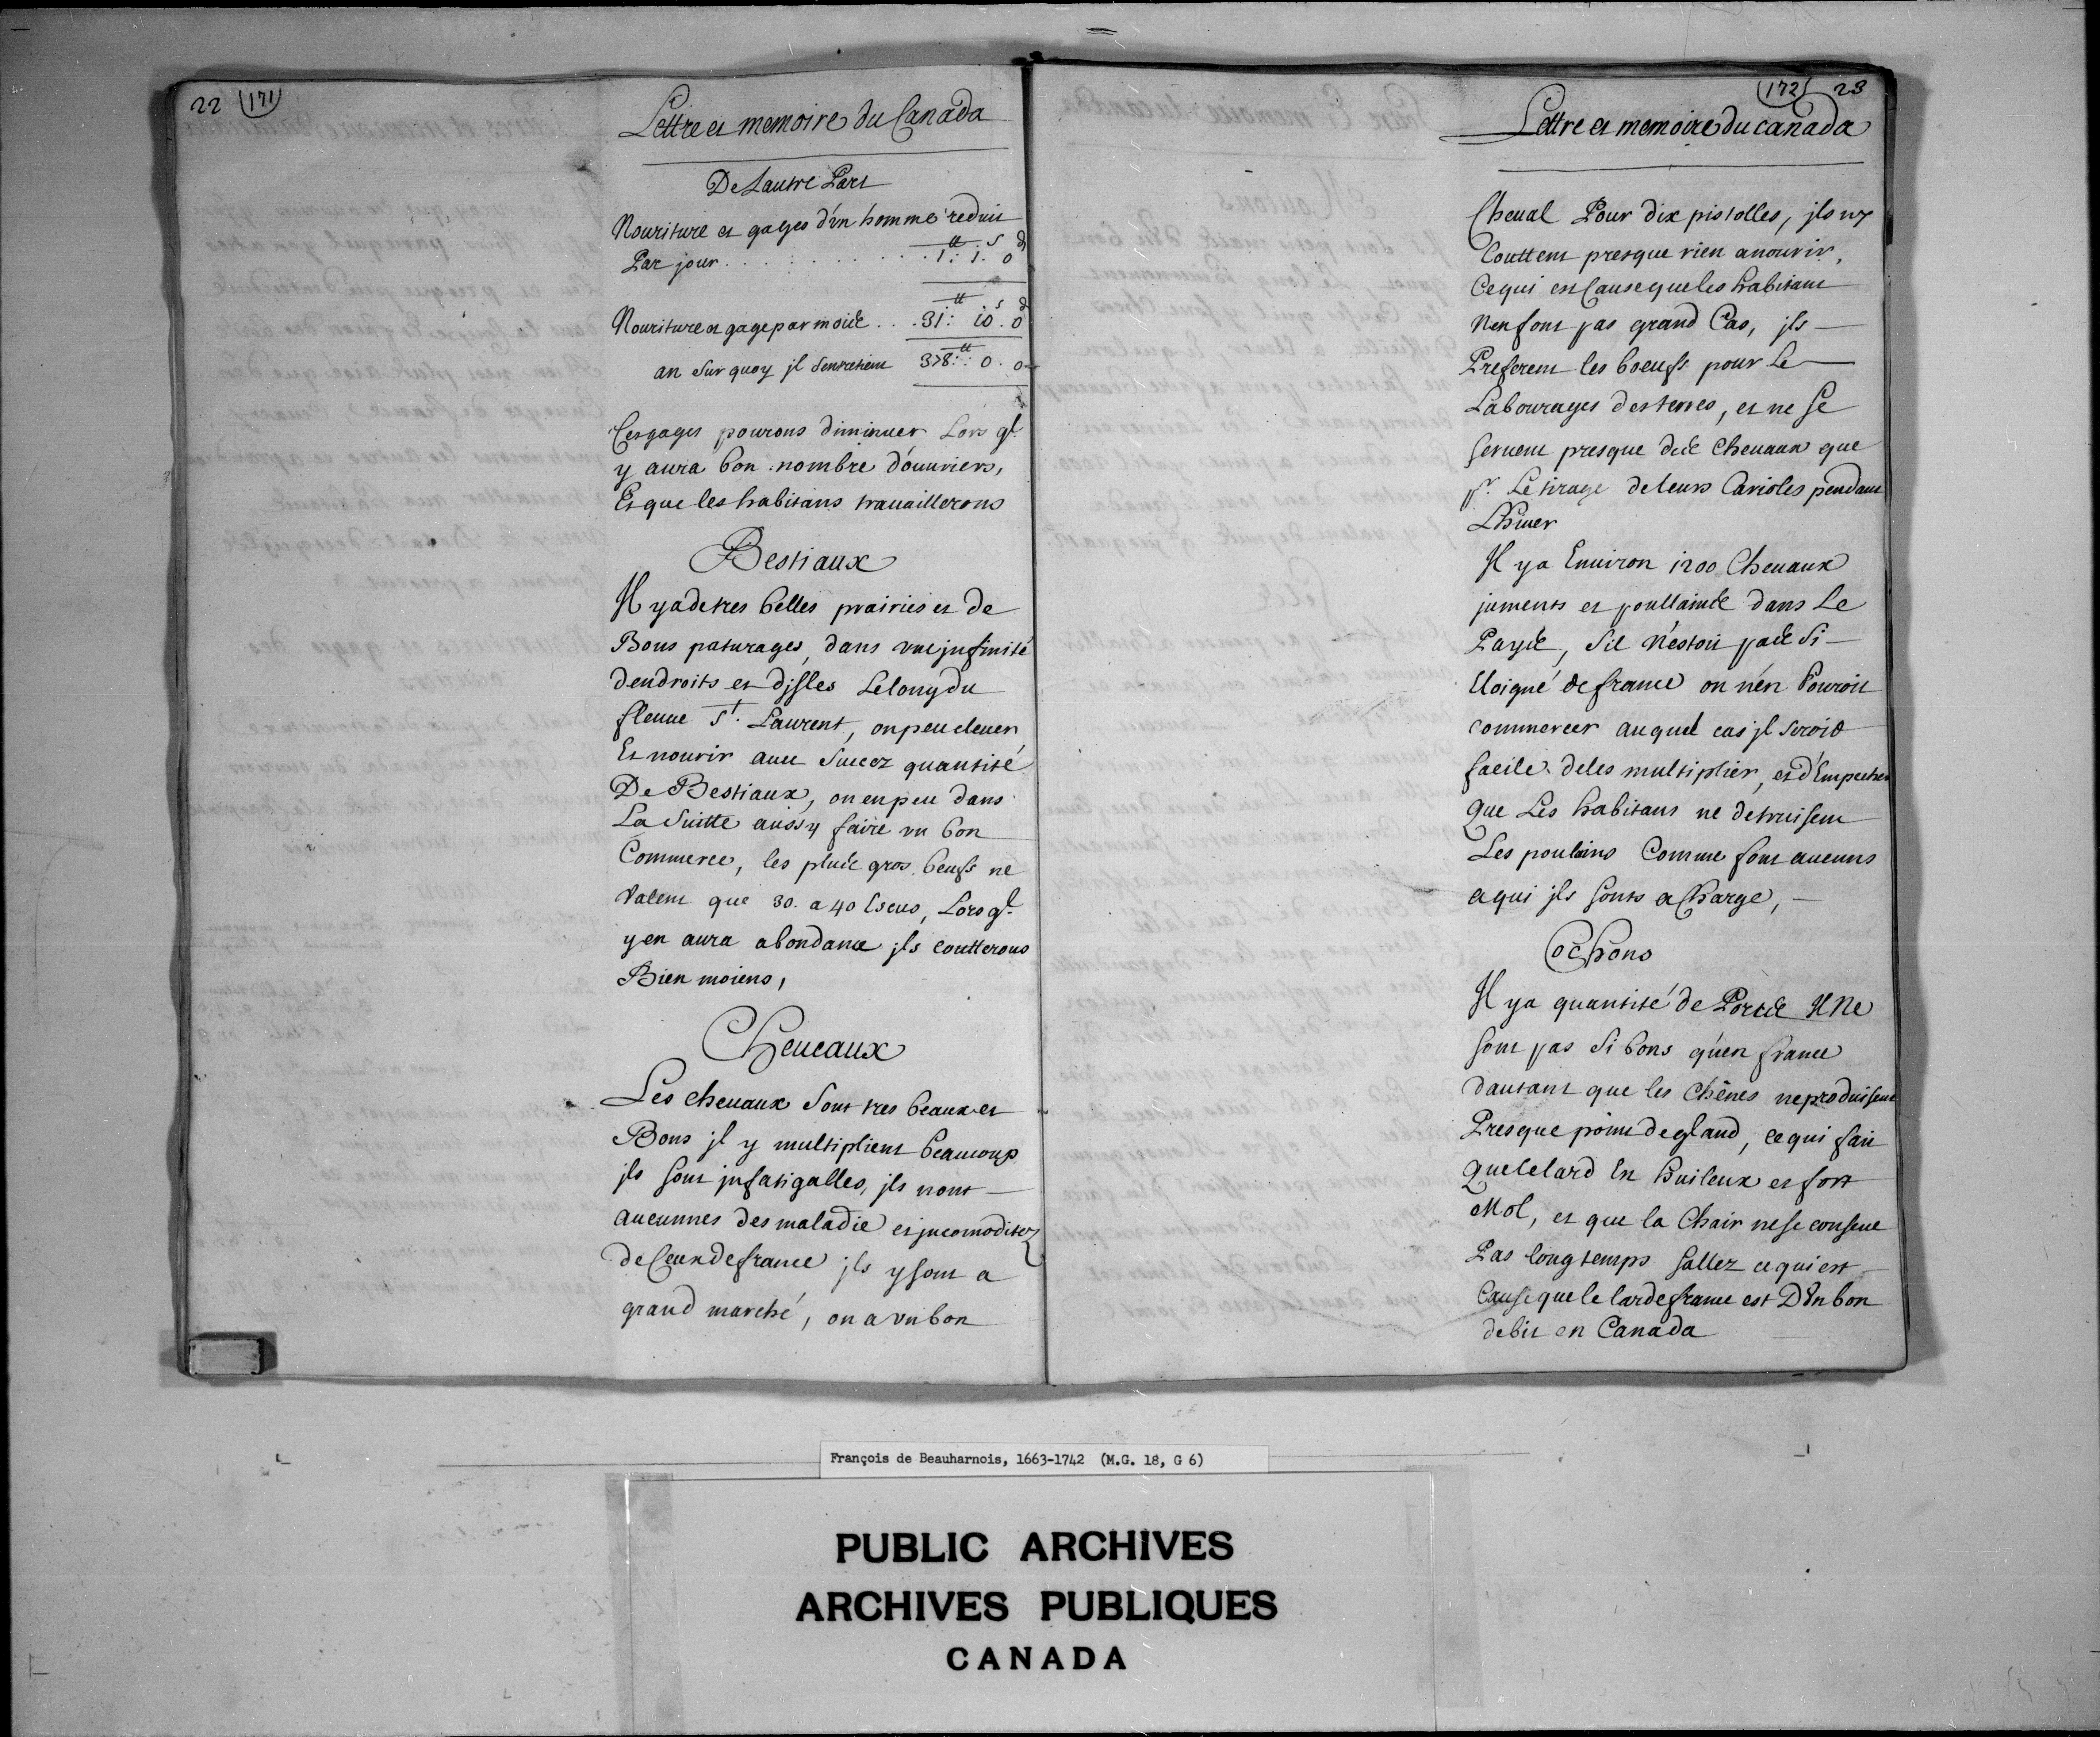 22 (171)
Lettre et memoire du Canada
De Lautre Part
Nouriture et gages d'un homme reduit
Par jour . . . . . . . . . . 1tt: 1s. 0d
Nouriture et gage par mois . . . 31tt: 10s. 0d
an sur quoy jl s'entretient 378tt: 0. 0
Ces gages pourons diminuer Lors ql
y aura bon nombre d'ouuriers,
Et que les habitans trauaillerons
Bestiaux
Il y a de tres belles prairies et de
Bons paturages, dans vne jnfinité
dendroits et djsles Le long du
fleuue St. Laurent, on peu eleuer
Et nourir auec Succez quantité
De Bestiaux, on en peu dans
La Suitte aussy faire vn bon
Commerce, les plus gros beufs ne
Valent que 30. a 40 Escus, Lors ql
y en aura abondance jls coutterons
Bien moiens,
Cheueaux
Les cheuaux Sont tres beaux et
Bons jl y multiplient beaucoup
jls sont jnfatigalles, jls nont
aucunnes des maladie et jncomoditez
de Ceux de france jls y sont a
grand marché, on a vn bon
(172) 23
Lettre et memoire du canada
Cheual Pour dix pistolles, jls ny
Couttent presque rien anourir,
Ce qui est Cause que les habitans
Nen font pas grand Cas, jls
Preferent les boeufs pour Le
Labourages des terres, et ne se
seruent presque des Cheuaux que
pr. Le tirage de leurs Carioles pendant
LHiuer
Il y a Enuiron 1200 Cheuaux
juments et poullains dans Le
Pays, Sil n'estoit pas Si
Eloigné de france on n'en Pouroit
commercer auquel cas jl seroit
facile de les multiplier, et d'Empecher
Que Les habitans ne detruisent
Les poulains Comme font aucuns
a qui jls sonts a Charge,
Cochons
Il ya quantité de Porcs Il Ne
sont pas Si bons qu'en france
dautant que les Chênes ne produisent
Presque point de gland, ce qui fait
Que le lard En huileux et fort
Mol, et que la Chair ne se conserue
Pas longtemps Sallez ce qui est
Cause que le lard de france est D'Vn bon
debit en Canada
François de Beauharnois, 1663-1742 (M.G. 18, G 6)
PUBLIC ARCHIVES
ARCHIVES PUBLIQUES
CANADA